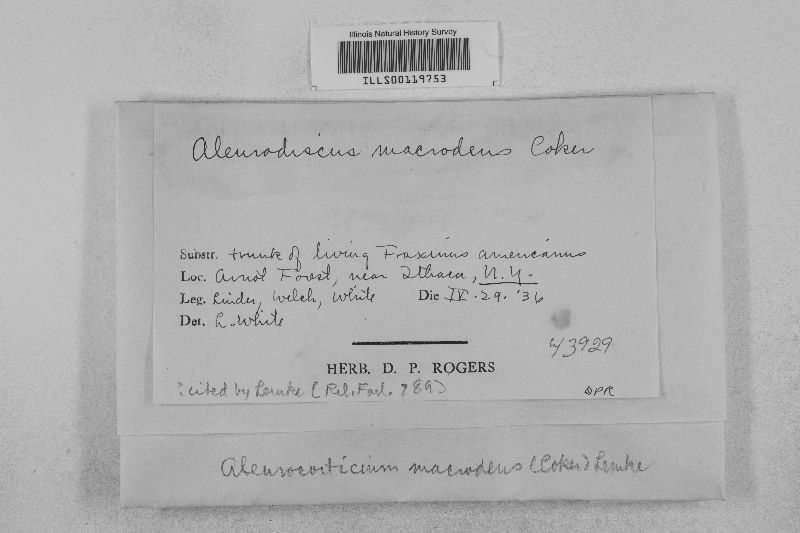 Illinois Natural History Survey
ILLS00119753
Aleurodiscus macrodens Coker
Substr. trunk of living Fraxinus americanus
Loc. Arnot Forest, near Ithaca, N.Y.
Leg. Linder, Welch, White Die IV. 29. '36
Det. L. White
43929
HERB. D. P. ROGERS
: cited by Lemke ( Farl. 789)
DPR
Aleurocorticium macrodens (Coker) Lemke